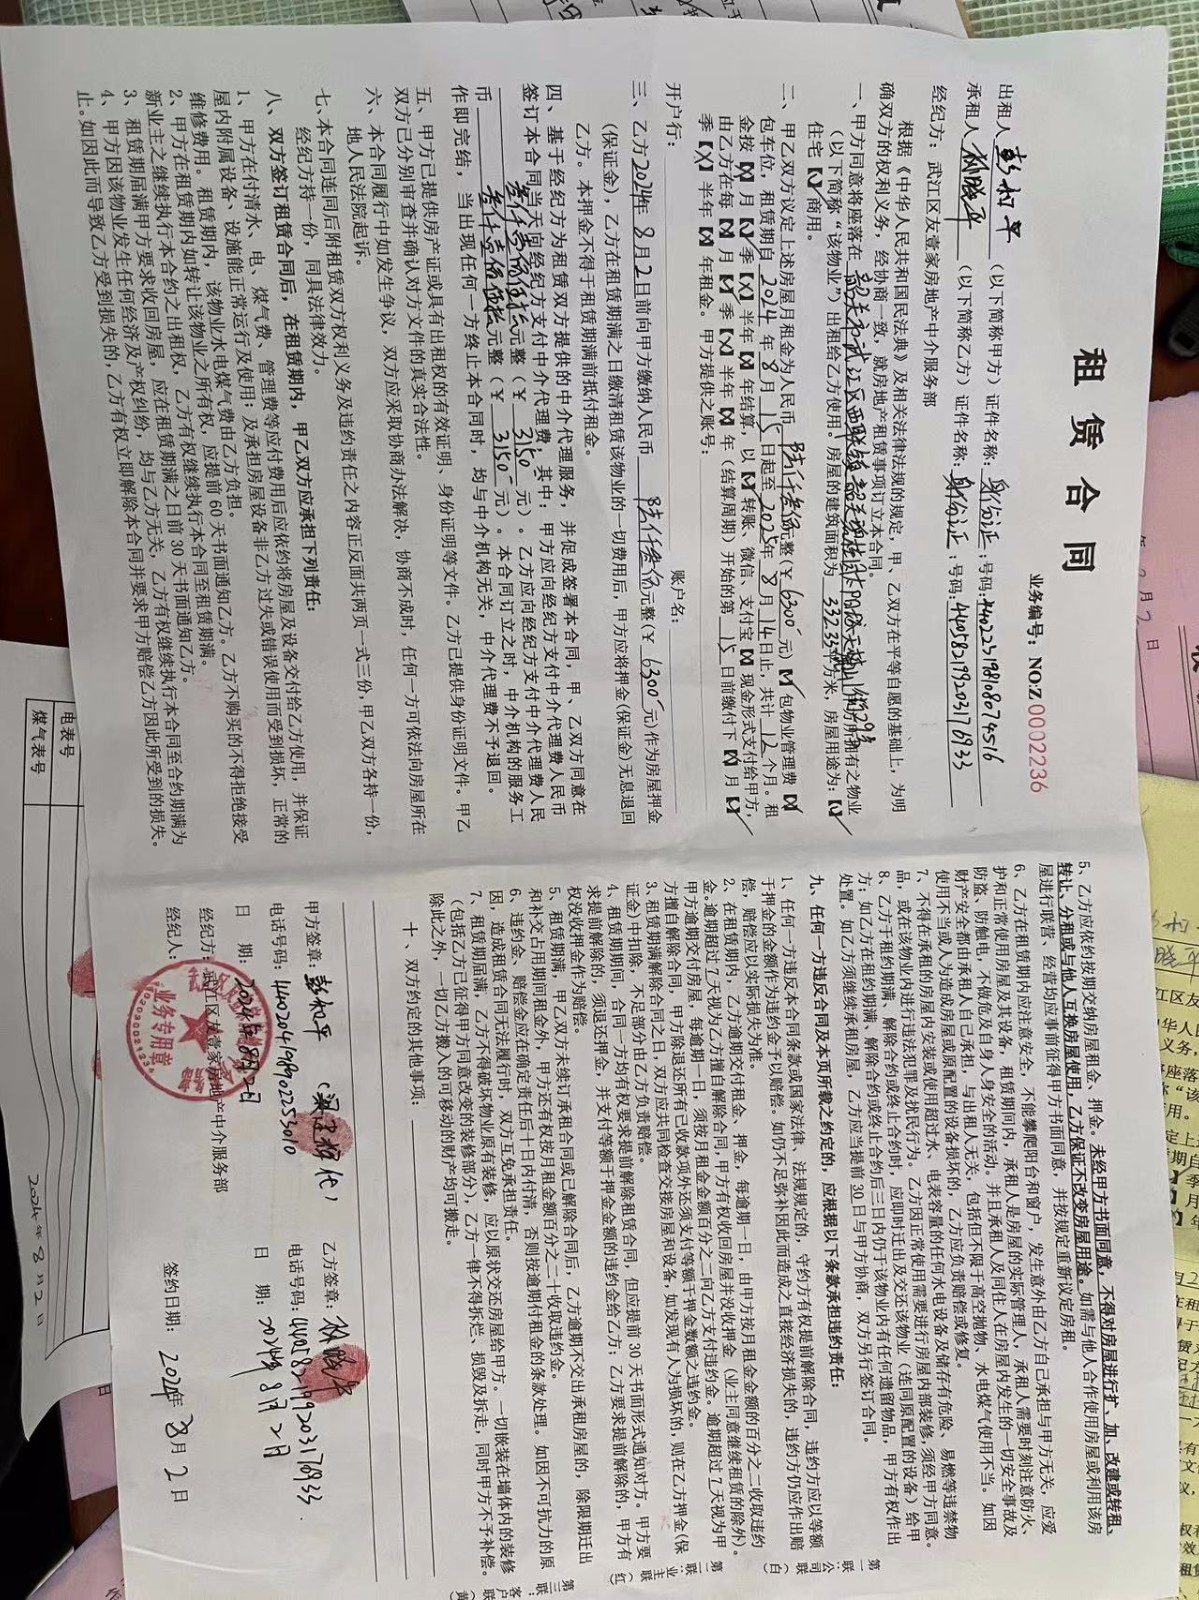 租赁合同
业务编号：NO:Z0002236
出租人 彭初平 （以下简称甲方）证件名称：身份证：号码：
承租人 （以下简称乙方）证件名称：身份证：号码：
经纪方： 武江区友壹家房地产中介服务部
根据《中华人民共和国民法典》及相关法律法规的规定，甲、乙双方在平等自愿的基础上，为明
确双方的权利义务，经协商一致，就房地产租赁事项订立本合同。
一、甲方同意将座落在 韶关市武江区西联镇 房所拥有之物业
（以下简称“该物业”）出租给乙方使用。房屋的建筑面积为 332.33 平方米，房屋用途为：【】
住宅【】商用。
二、甲乙双方议定上述房屋月租金为人民币 陆仟叁佰 元整（￥6300 元）【】包物业管理费【】
包车位，租赁期自 2024 年 8 月 15 日起至 2025 年 8 月 14 日止，共计 12 个月。租
金按【】月【】季【】半年【】年结算，以【】转账、微信、支付宝【】现金形式支付给甲方，
由乙方在每【】月【】季【】半年【】年（结算周期）开始的第 15 日前缴付下【】月【】
季【】半年【】年租金。甲方提供之账号：
开户行： 账户名：
三、乙方 2024 年 8 月 2 日前向甲方缴纳人民币 陆仟叁佰 元整（￥6300 元）作为房屋押金
（保证金），乙方在租赁期满之日缴清租赁该物业的一切费用后，甲方应将押金（保证金）无息退回
乙方。本押金不得于租赁期满前抵付租金。
四、基于经纪方为租赁双方提供的中介代理服务，并促成签署本合同，甲、乙双方同意在
签订本合同当天向经纪方支付中介代理费；其中：甲方应向经纪方支付中介代理费人民币
叁仟壹佰伍拾 元整（￥3150 元）。乙方应向经纪方支付中介代理费人民
币 叁仟壹佰伍拾 元整（￥3150 元）。本合同订立之时，中介机构的服务工
作即完结，当出现任何一方终止本合同时，均与中介机构无关，中介代理费不予退回。
五、甲方已提供房产证或具有出租权的有效证明、身份证明等文件。乙方已提供身份证明文件。甲乙
双方已分别审查并确认对方文件的真实合法性。
六、本合同履行中如发生争议，双方应采取协商办法解决，协商不成时，任何一方可依法向房屋所在
地人民法院起诉。
七、本合同连同后附租赁双方权利义务及违约责任之内容正反面共两页一式三份，甲乙双方各持一份，
经纪方持一份，同具法律效力。
八、双方签订租赁合同后，在租赁期内，甲乙双方应承担下列责任：
1、甲方在付清水、电、煤气费、管理费等应付费用后应依约将房屋及设备交付给乙方使用，并保证
屋内附属设备、设施能正常运行及使用；及承担房屋设备非乙方过失或错误使用而受到损坏，正常的
维修费用。租赁期内，该物业水电煤气费由乙方负担。
2、甲方在租赁期内如转让该物业之所有权，应提前 60 天书面通知乙方。乙方不购买的不得拒绝接受
新业主之继续执行本合约之出租权，乙方有权继续执行本合同至租赁期满。
3、租赁期届满甲方要求收回房屋，应在租赁期满之日前 30 天书面通知乙方。
4、甲方因该物业发生任何经济及产权纠纷，均与乙方无关，乙方有权继续执行本合同至合约期满为
止。如因此而导致乙方受到损失的，乙方有权立即解除本合同并要求甲方赔偿乙方因此所受到的损失。
5、乙方应依约按期交纳房屋租金、押金。未经甲方书面同意，不得对房屋进行扩、加、改建或转租、
转让、分租或与他人互换房屋使用，乙方保证不改变房屋用途。如需与他人合作使用房屋或利用该房
屋进行联营、经营均应事前征得甲方书面同意，并按规定重新议定房租。
6、乙方在租赁期内应注意安全，不能攀爬阳台和窗户，发生意外由乙方自己承担与甲方无关，应爱
护和正常使用房屋及其设备，租赁期间内，承租人是房屋的实际管理人，承租人需要时刻注意防火、
防盗、防触电，不做危及自身人身安全的活动。并且承租人及同住人在房屋内发生的一切安全事故及
财产安全都由承租人自己承担，与出租人无关，包括但不限于高空抛物、水电煤气使用不当。如因
使用不当或人为造成房屋或原配置的设备损坏的，乙方应负责赔偿或修复。
7、不得在承租的房屋内安装或使用超过水、电表容量的任何水电设备及储存有危险、易燃等违禁物
品，或在该物业内进行违法犯罪及扰民行为。乙方因正常使用需要进行房屋内部装修，须经甲方同意。
8、乙方于租期满、解除合约或终止合约时，应即时迁出及交还该物业（连同原配置的设备）给甲
方；如乙方在租约期满、解除合约或终止合约后三日内仍于该物业内有任何遗留物品，甲方有权作出
处置。如乙方须继续承租房屋，乙方应当提前 30 日与甲方协商，双方另行签订合同。
九、任何一方违反合同及本页所载之约定的，应根据以下条款承担违约责任：
1、任何一方违反本合同条款或国家法律、法规规定的，守约方有权提前解除合同，违约方应以等额
于押金的金额作为违约金予以赔偿。如仍不足弥补因此而造成之直接经济损失的，违约方仍应作出赔
偿，赔偿应以实际损失为准。
2、在租赁期内，乙方逾期交付租金、押金，每逾期一日，由甲方按月租金金额的百分之二收取违约
金。逾期超过 7 天视为乙方擅自解除合同，甲方有权收回房屋并没收押金（业主同意继续租赁的除外）。
甲方逾期交付房屋，每逾期一日，须按月租金金额百分之二向乙方支付违约金。逾期超过 7 天视为甲
方擅自解除合同，甲方除退还所有已收款项外还须支付等额于押金数额之违约金。
3、租赁期满解除合同之日，双方应共同检查交接房屋和设备，如发现有人为损坏的，则在乙方押金（保
证金）中扣除，不足部分由乙方负责赔偿。
4、租赁期期间，合同一方均有权要求提前解除租赁合同，但应提前 30 天书面形式通知对方。甲方要
求提前解除的，须退还押金，并支付等额于押金金额的违约金给乙方；乙方要求提前解除的，甲方有
权没收押金作为赔偿。
5、租赁期满，甲乙双方未续订承租合同或已解除合同后，乙方逾期不交出承租房屋的，除限期迁出
和补交占用期间租金外，甲方还有权按月租金额百分之二十收取违约金。
6、违约金、赔偿金应在确定责任后十日内付清，否则按逾期付租金的条款处理。如因不可抗力的原
因，造成租赁合同无法履行时，双方互免承担责任。
7、租赁期届满，乙方不得破坏物业原有装修，应以原状交还房屋给甲方。一切嵌装在墙体内的装修
（包括乙方已征得甲方同意改变的装修部分），乙方一律不得拆烂、损毁及拆走，同时甲方不予补偿。
除此之外，一切乙方搬入的可移动的财产均可搬走。
十、双方约定的其他事项：
甲方签章：彭初平 （ 代） 乙方签章：
电话号码：440204199902253010 电话号码：440582199203176933
日 期：2024年8月2日 日 期：2024年8月2日
经纪方：武江区友壹家房地产中介服务部
经纪人： 签约日期：2024年8月2日
业务专用章
第一联：公司联（白）
第二联：业主联（红）
第三联：客户联（黄）
电表号
煤气表号
2024年8月2日